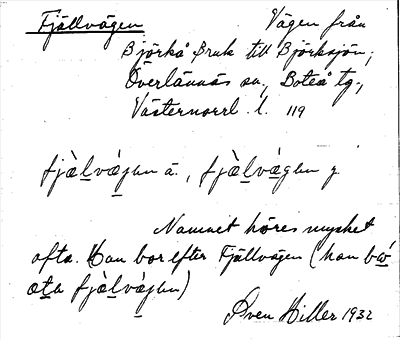 Fjällvägen Vägen från
Björkå Bruk till Björksjön,
Överlännäs sn., Boteå tg.,
Västernorrl. l. 119
fjä̀lvá̱jen ä., fjä̀lvá̱gen y.
Namnet höres mycket
ofta. Han bor efter Fjällvägen (han bώ
ata fjä̀lvá̱jen)
Sven Hiller 1932